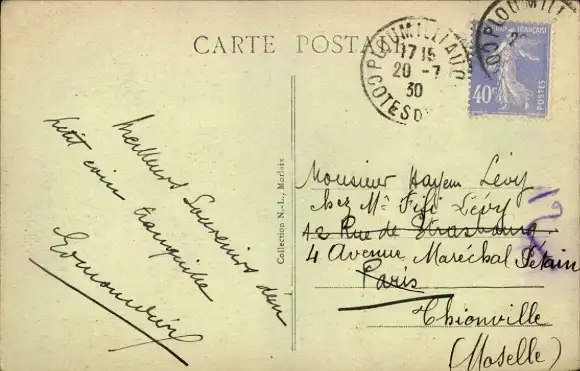 CARTE POSTALE
PLOUMILLIAU
17 15
20 -7
30
COTES D
PLOUMILLI
FRANÇAISE
40c
POSTES
Meilleurs Souvenirs d'un
petit coin tranquille
Collection N.-L., Morlaix
Monsieur Hayem Lévy
chez Mr Fifi Lévy
12 Rue de Strasbourg
4 Avenue Maréchal Pétain
Paris
Thionville
(Moselle)